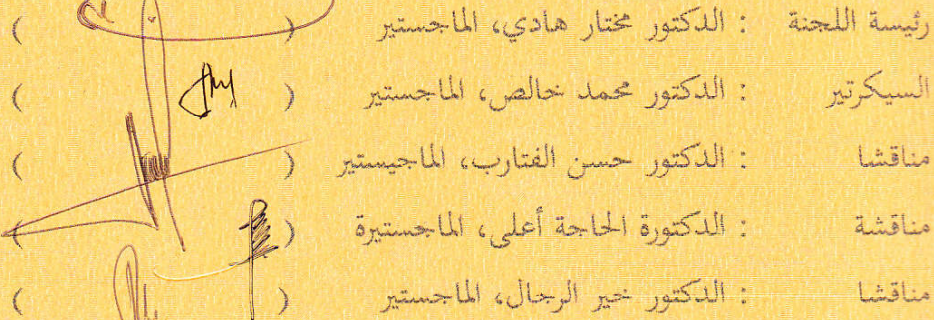 رئيسة اللجنة : الدكتور مختار هادي، الماجستير ( )
السيكرتير : الدكتور محمد خالص، الماجستير ( )
مناقشا : الدكتور حسن الفتارب، الماجيستير ( )
مناقشة : الدكتورة الحاجة أعلى، الماجستيرة ( )
مناقشا : الدكتور خير الرجال، الماجستير ( )